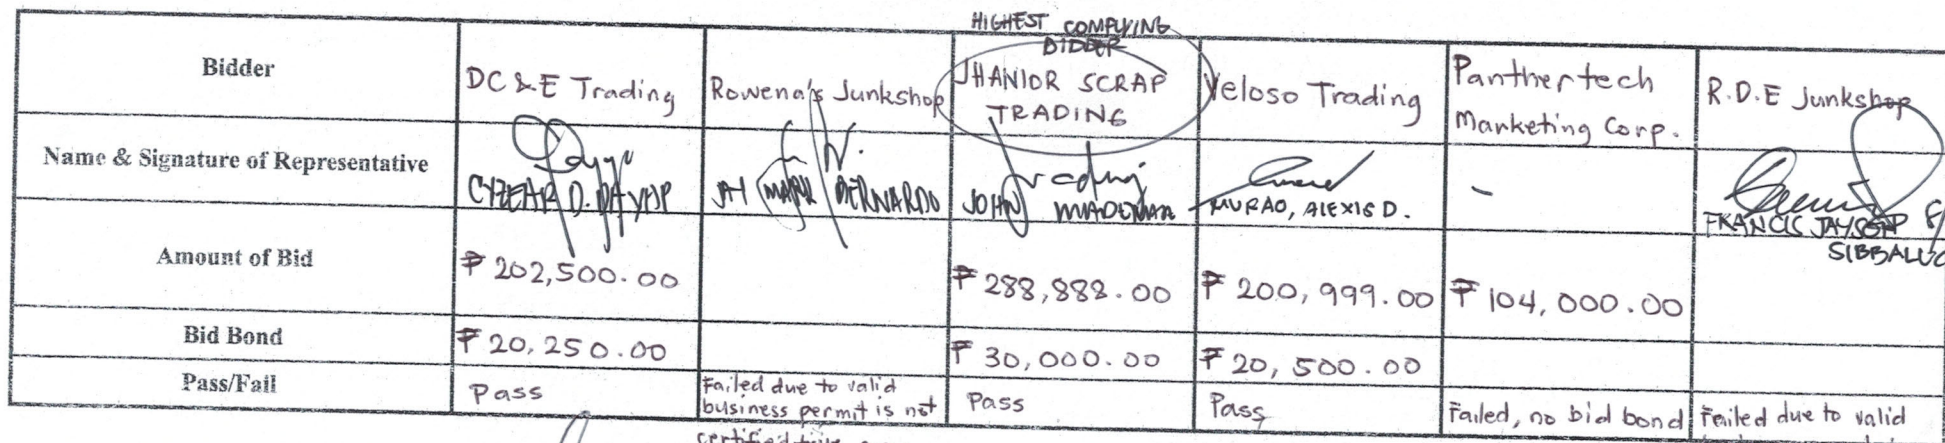 HIGHEST COMPLYING
BIDDER
Bidder
DC & E Trading
Rowena's Junkshop
JHANIOR SCRAP
TRADING
Veloso Trading
Panthertech
Marketing Corp.
R.D.E Junkshop
Name & Signature of Representative
D.
BERNARDO
JOHN
MURAO, ALEXIS D.
-
FRANCIS JAYSON
SIBBALUC
Amount of Bid
₱ 202,500.00
₱ 288,888.00
₱ 200,999.00
₱ 104,000.00
Bid Bond
₱ 20,250.00
₱ 30,000.00
₱ 20,500.00
Pass/Fail
Pass
Failed due to valid
business permit is not
Pass
Pass
Failed, no bid bond
Failed due to valid